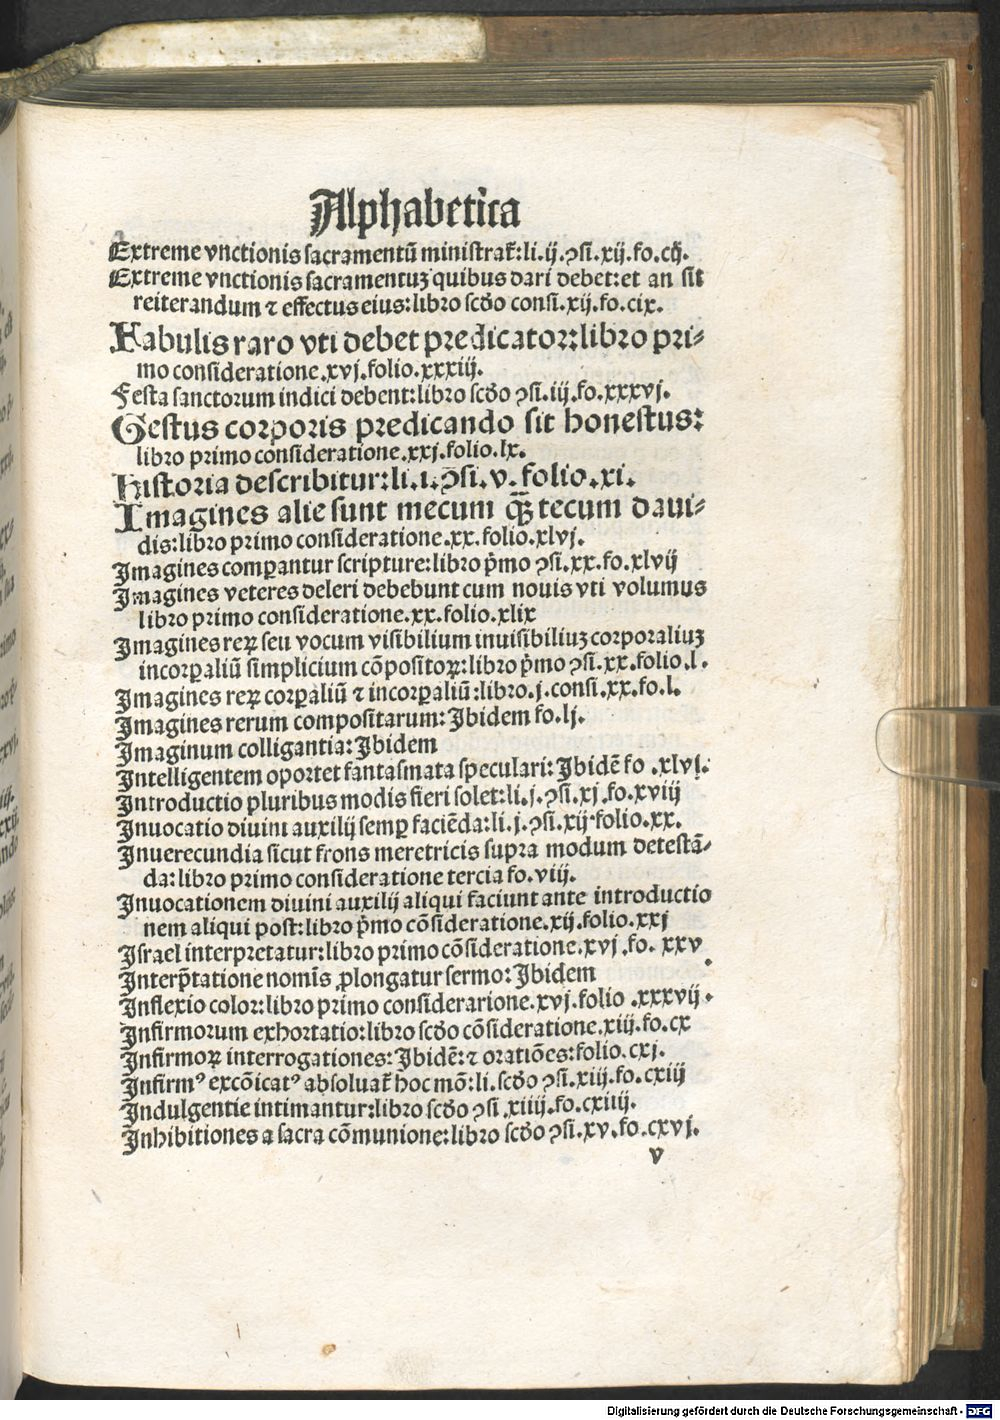 Alphabetica
Extreme vnctionis sacramentū ministrat̄: li. ij. ꝯsi. xij. fo. cij.
Extreme vnctionis sacramentuꝫ quibus dari debet: et an sit
reiterandum ⁊ effectus eius: libro scďo consi. xij. fo. cix.
Fabulis raro vti debet predicator: libro pri-
mo consideratione. xvj. folio. xxxiij.
Festa sanctorum indici debent: libro scďo ꝯsi. iij. fo. xxxvj.
Gestus corporis predicando sit honestus:
libro primo consideratione. xxj. folio. lx.
Historia describitur: li. i. ꝯsi. v. folio. xi.
Imagines alie sunt mecum qȝ̄ tecum daui-
dis: libro primo consideratione. xx. folio. xlvj.
Imagines comꝑantur scripture: libro p̄mo ꝯsi. xx. fo. xlvij
Imagines veteres deleri debebunt cum nouis vti volumus
libro primo consideratione. xx. folio. xlix
Imagines reꝝ seu vocum visibilium inuisibiliuꝫ corporaliuꝫ
incorꝑaliū simplicium cōpositoꝝ: libro p̄mo ꝯsi. xx. folio. l.
Imagines reꝝ corꝑaliū ⁊ incorꝑaliū: libro. j. consi. xx. fo. l.
Imagines rerum compositarum: Ibidem fo. lj.
Imaginum colligantia: Ibidem
Intelligentem oportet fantasmata speculari: Ibidē fo. xlvj.
Introductio pluribus modis fieri solet: li. j. ꝯsi. xj. fo. xviij
Inuocatio diuini auxilij semꝑ faciēda: li. j. ꝯsi. xij. folio. xx.
Inuerecundia sicut frons meretricis supra modum detestā-
da: libro primo consideratione tercia fo. viij.
Inuocationem diuini auxilij aliqui faciunt ante introductio
nem aliqui post: libro p̄mo cōsideratione. xij. folio. xxj
Israel interpretatur: libro primo cōsideratione. xvj. fo. xxv
Interp̄tatione nomīs ꝓlongatur sermo: Ibidem
Inflexio color: libro primo considerarione. xvj. folio. xxxvij.
Infirmorum exhortatio: libro scďo cōsideratione. xiij. fo. cx
Infirmoꝝ interrogationes: Ibidē: ⁊ oratiōes: folio. cxj.
Infirmꝰ excōicatꝰ absoluat̄ hoc mō: li. scďo ꝯsi. xiij. fo. cxiij
Indulgentie intimantur: libro scďo ꝯsi. xiiij. fo. cxiiij.
Inhibitiones a sacra cōmunione: libro scďo ꝯsi. xv. fo. cxvj.
v
Digitalisierung gefördert durch die Deutsche Forschungsgemeinschaft - DFG